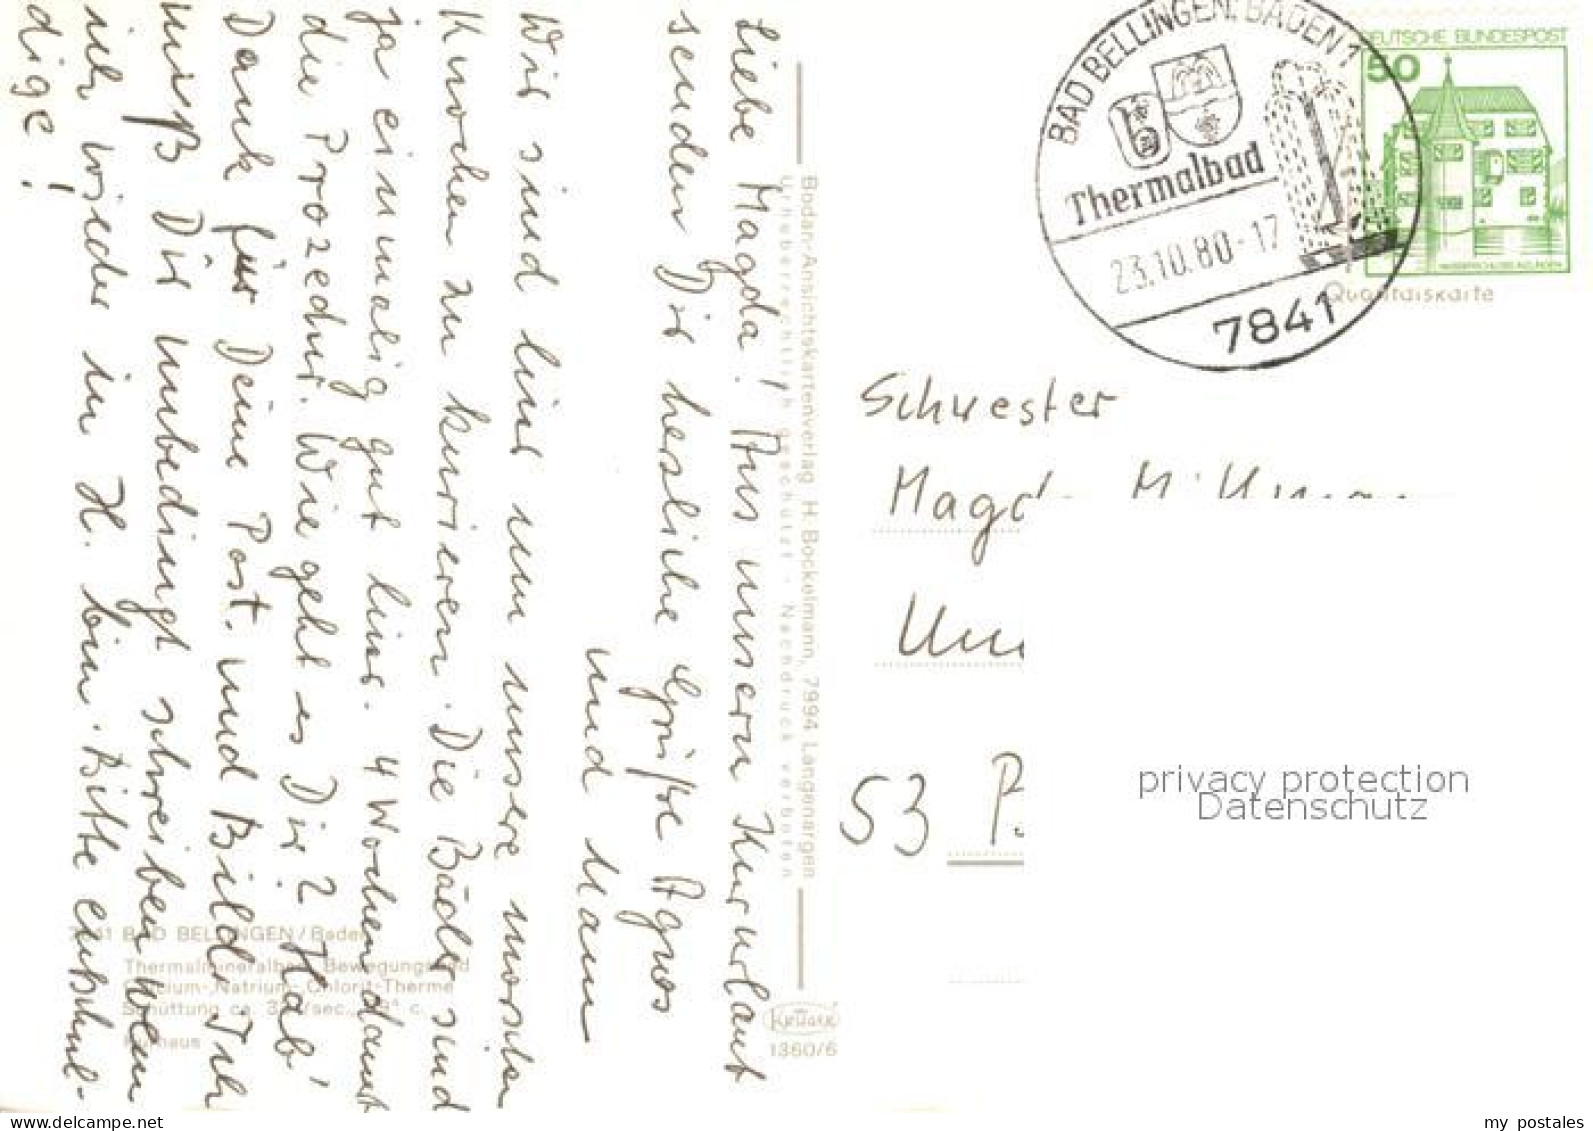 Liebe Magda! Aus unserm Kururlaub
senden Dir herzliche Grüße Agnes
und Mann
Wir sind hier um unsere morschen
Knochen zu kurieren. Die Bäder sind
ja einmalig gut hier. 4 Wochen dauert
die Prozedur. Wie geht es Dir? Hab'
Dank für Deine Post. und Bild. Ich
muß Dir unbedingt schreiben wenn
ich wieder in H. bin. Bitte entschul-
dige!
7841 BAD BELLINGEN/Baden
Thermalmineralbad Bewegungsbad
Calcium-, Natrium-, Chlorid-Therme
Schüttung ca.
Kurhaus
Bodan-Ansichtskartenverlag H. Bockelmann, 7994 Langenargen
Urheberrechtlich geschützt - Nachdruck verboten
KRÜGER
1360/6
BAD BELLINGEN, BADEN 1
Thermalbad
23.10.80-17
7841
DEUTSCHE BUNDESPOST
50
WASSERSCHLOSS INZLINGEN
Qualitätskarte
Schwester
Magda
53
privacy protection
Datenschutz
my postales